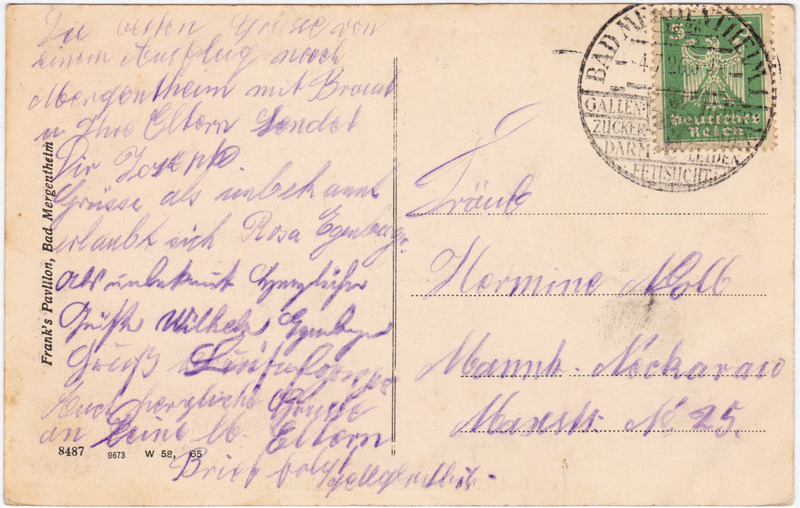 Die besten Grüsse von
einem Ausflug nach
Mergentheim mit Braut
u Ihre Eltern Sendet
Dir Joseph
Grüsse als unbekannt
erlaubt sich Rosa
als unbekannt herzliche
Grüße Wilhelm
Gruß
Auch herzliche Grüsse
an Deine lb. Eltern
Brief folgt
Frank's Pavillon, Bad Mergentheim
8487 9673 W 58, 65
BAD MERGENTHEIM 1
GALLEN-
ZUCKER-
DARM LEIDEN
FETTSUCHT
5
Deutsches
Reich
Fräul.
Hermine Noll
Mannh. Neckarau
Maxstr. No 25.